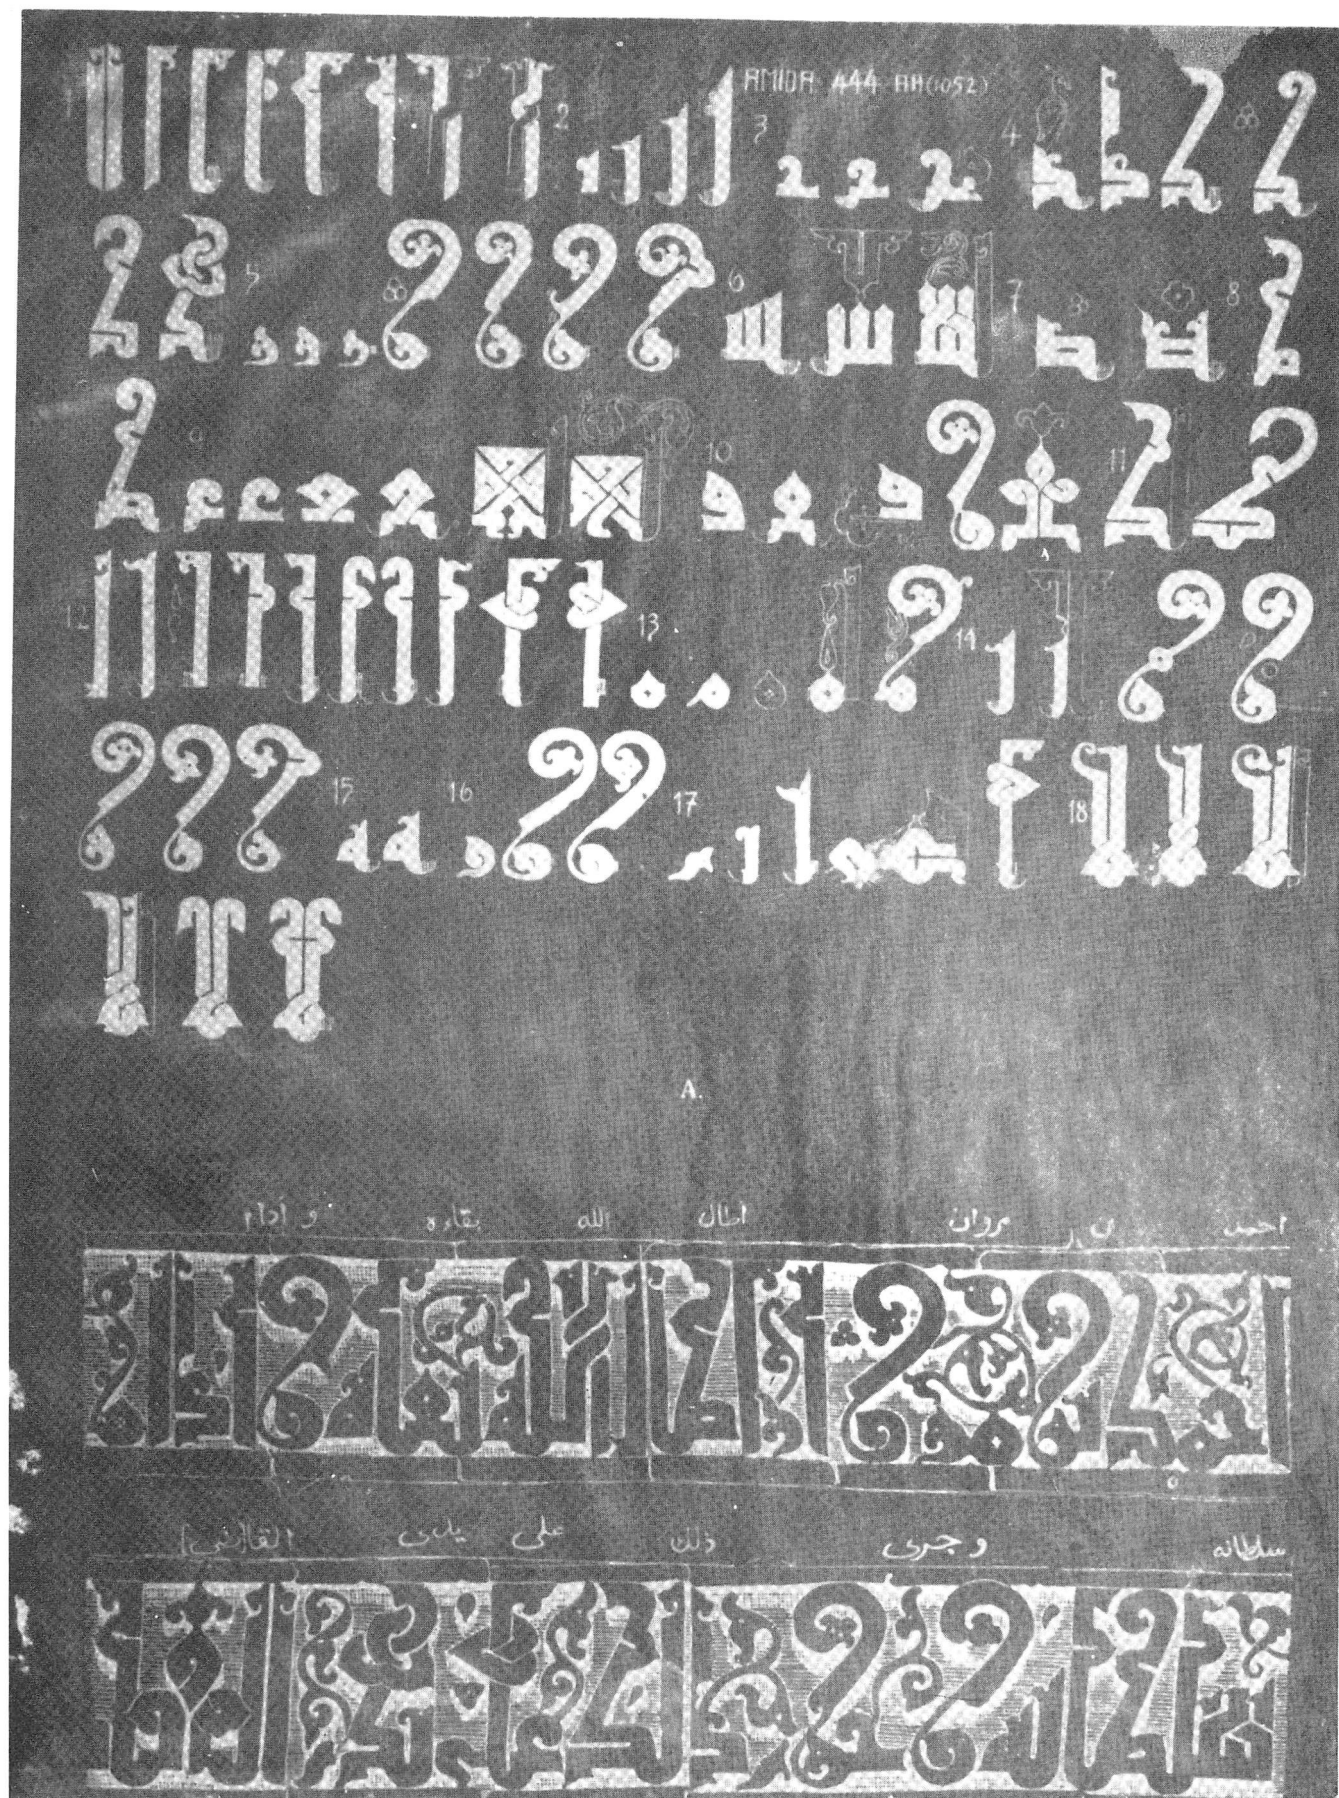 1 2 AMIDA 444 AH(1052) 3 4
5 6 7 8
9 10 11
12 13 14
15 16 17 18
A.
احمد بن مروان اطال الله بقاءه و أدام
سلطانه و جرى ذلك على يدى القا[ضى]